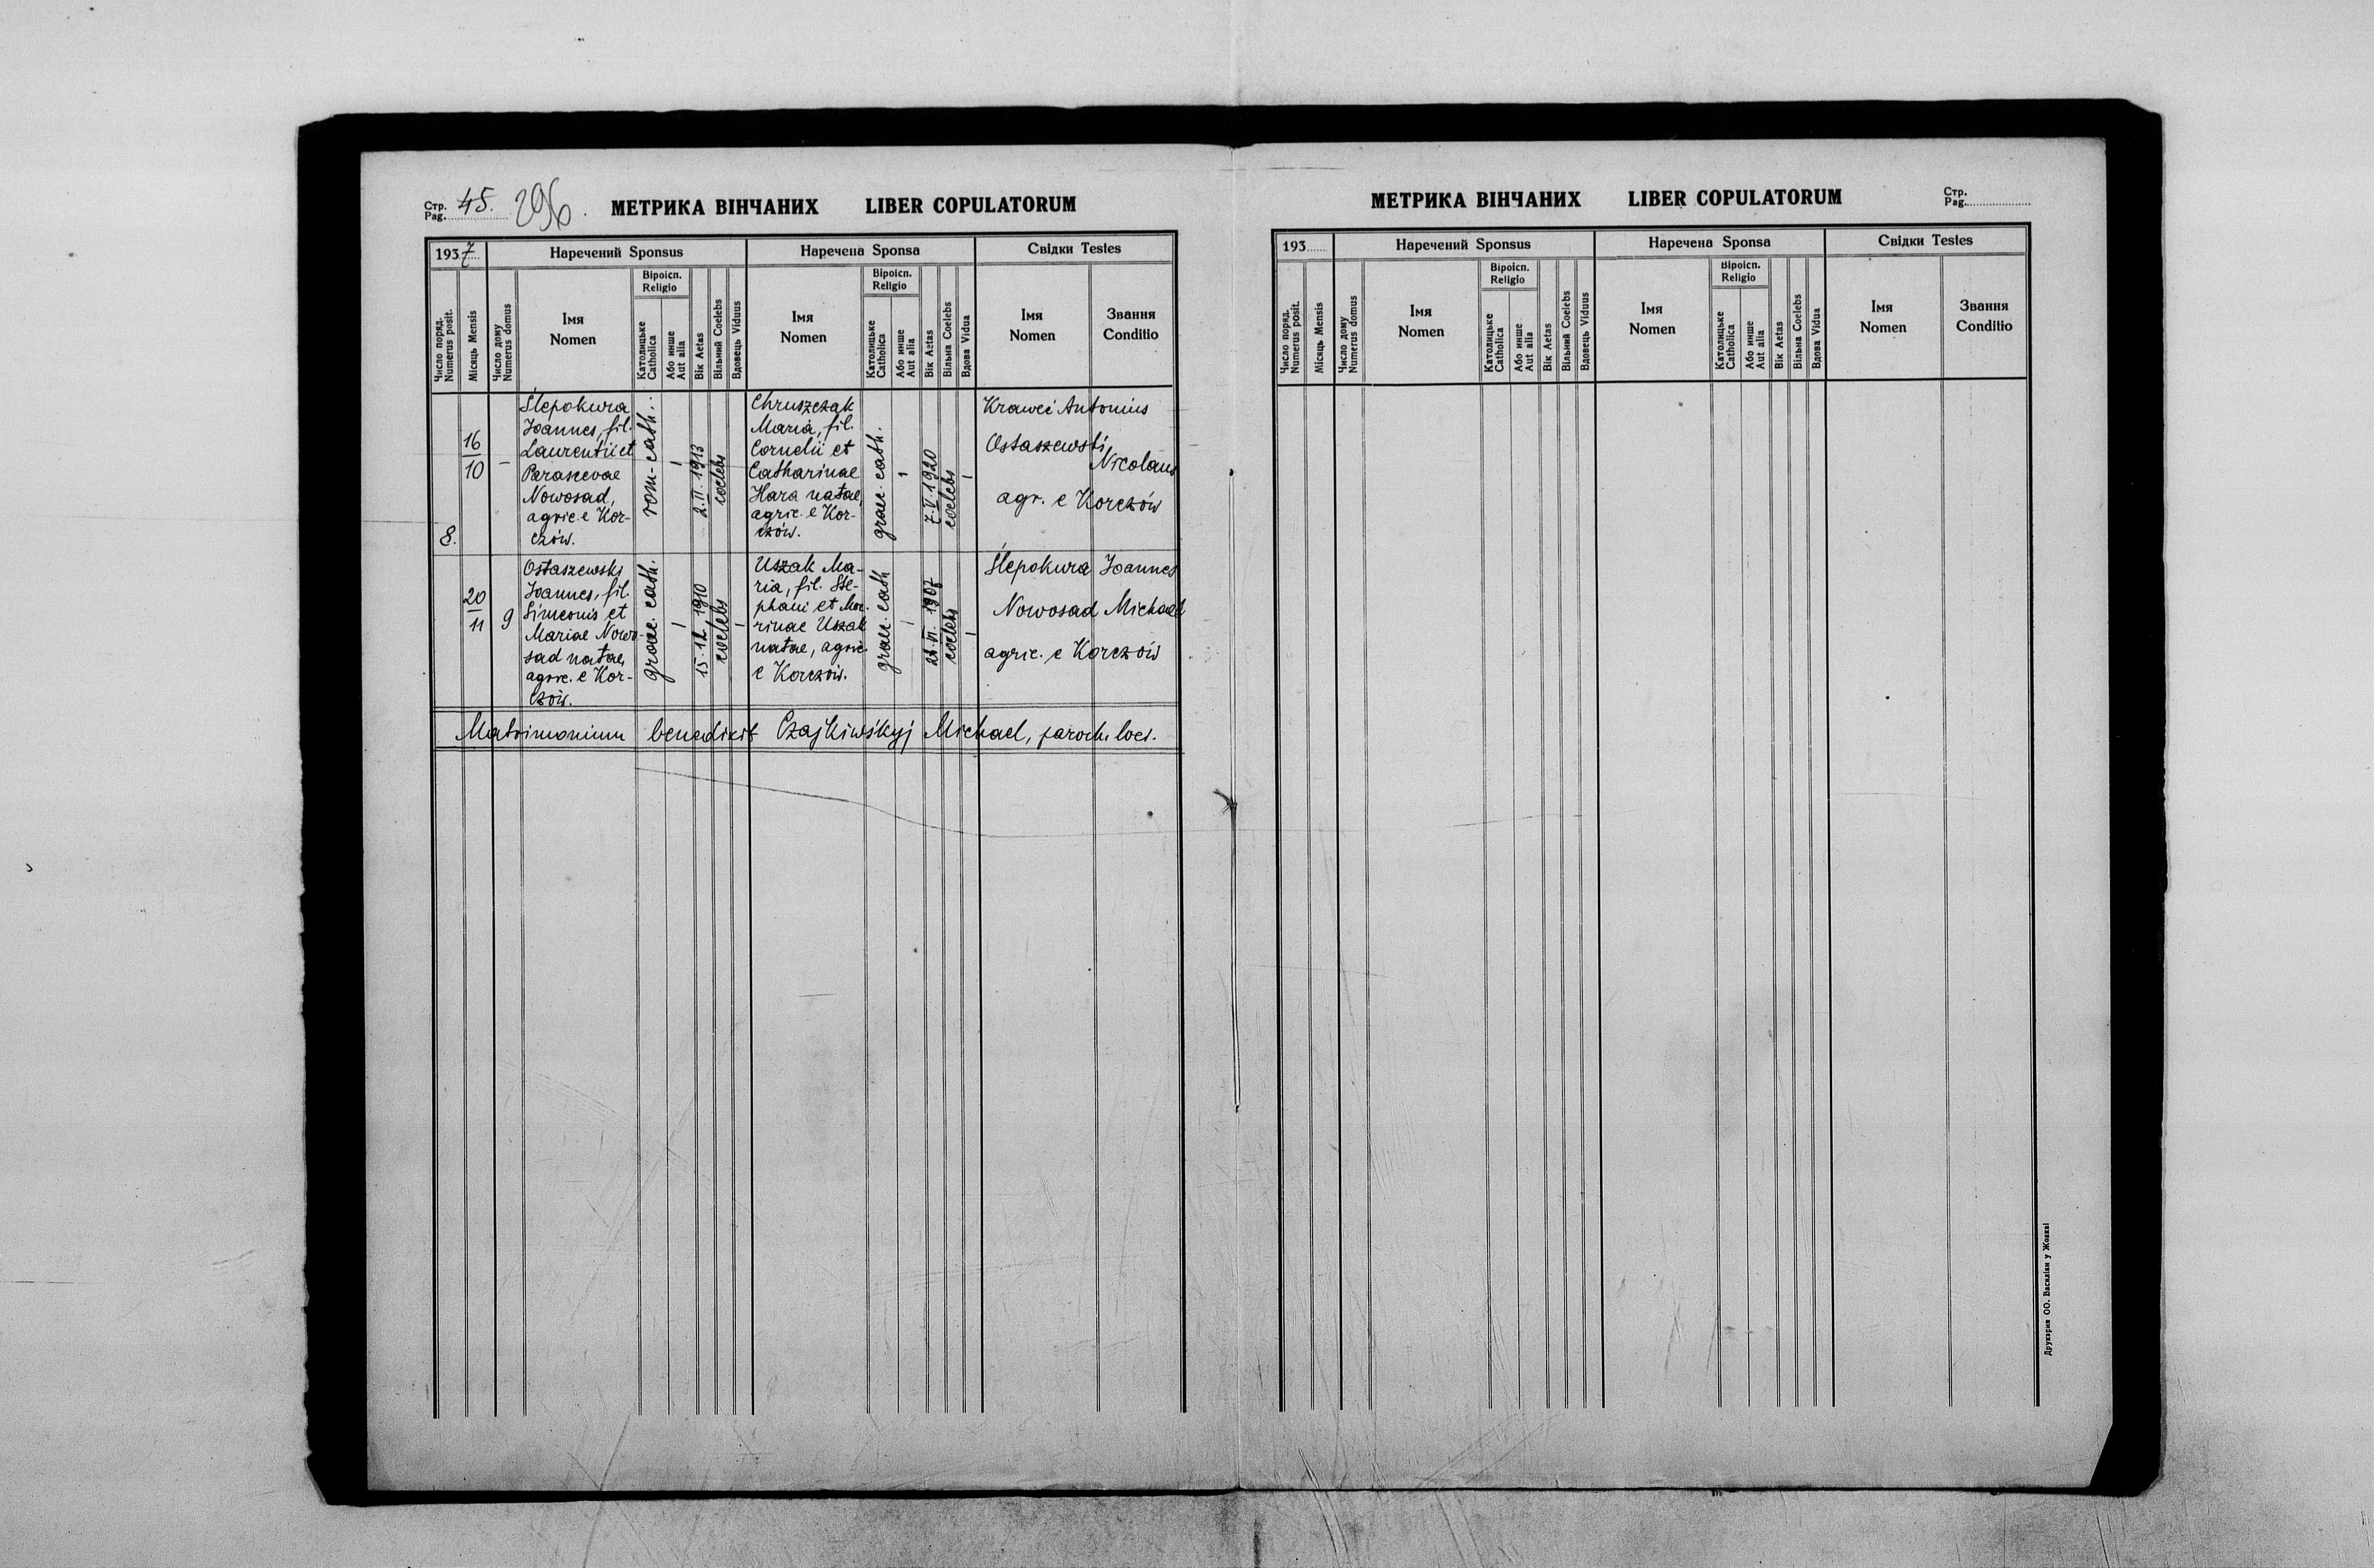 Стр.
Pag. 45. 296.
МЕТРИКА ВІНЧАНИХ LIBER COPULATORUM
1937
Наречений Sponsus
Наречена Sponsa
Свідки Testes
Число поряд.
Numerus posit.
Місяць Mensis
Число дому
Numerus domus
Імя
Nomen
Віроісп.
Religio
Католицьке
Catholica
Або инше
Aut alia
Вік Aetas
Вільний Coelebs
Вдовець Viduus
Імя
Nomen
Віроісп.
Religio
Католицьке
Catholica
Або инше
Aut alia
Вік Aetas
Вільна Coelebs
Вдова Vidua
Імя
Nomen
Звання
Conditio
8.
16
10
–
Ślepokura
Joannes, fil.
Laurentii et
Parascevae
Nowosad,
agric. e Kor-
czów.
rom-cath.
–
2. II. 1913
coelebs
Chruszczak
Maria, fil.
Cornelii et
Catharinae
Hara natae,
agric. e Kor-
czów.
graec. cath.
–
7. V. 1920
coelebs
–
Krawci Antonius
Ostaszewski
Nicolaus
agr. e Korczów
20
11
9
Ostaszewski
Joannes, fil.
Simeonis et
Mariae Nowo-
sad natae,
agric. e Kor-
czów.
graec. cath.
–
15. 12. 1910
coelebs
–
Uszak Ma-
ria, fil. Ste-
phani et Ma-
rinae Uszak
natae, agric.
e Korczów.
graec. cath
–
1907
coelebs
–
Ślepokura Joannes
Nowosad Michael
agric. e Korczów
Matrimonium benedixit Czajkiwśkyj Michael, paroch. loci.
МЕТРИКА ВІНЧАНИХ LIBER COPULATORUM
Стр.
Pag.
193
Наречений Sponsus
Наречена Sponsa
Свідки Testes
Число поряд.
Numerus posit.
Місяць Mensis
Число дому
Numerus domus
Імя
Nomen
Віроісп.
Religio
Католицьке
Catholica
Або инше
Aut alia
Вік Aetas
Вільний Coelebs
Вдовець Viduus
Імя
Nomen
Віроісп.
Religio
Католицьке
Catholica
Або инше
Aut alia
Вік Aetas
Вільна Coelebs
Вдова Vidua
Імя
Nomen
Звання
Conditio
Друкарня ОО. Василіян у Жовкві